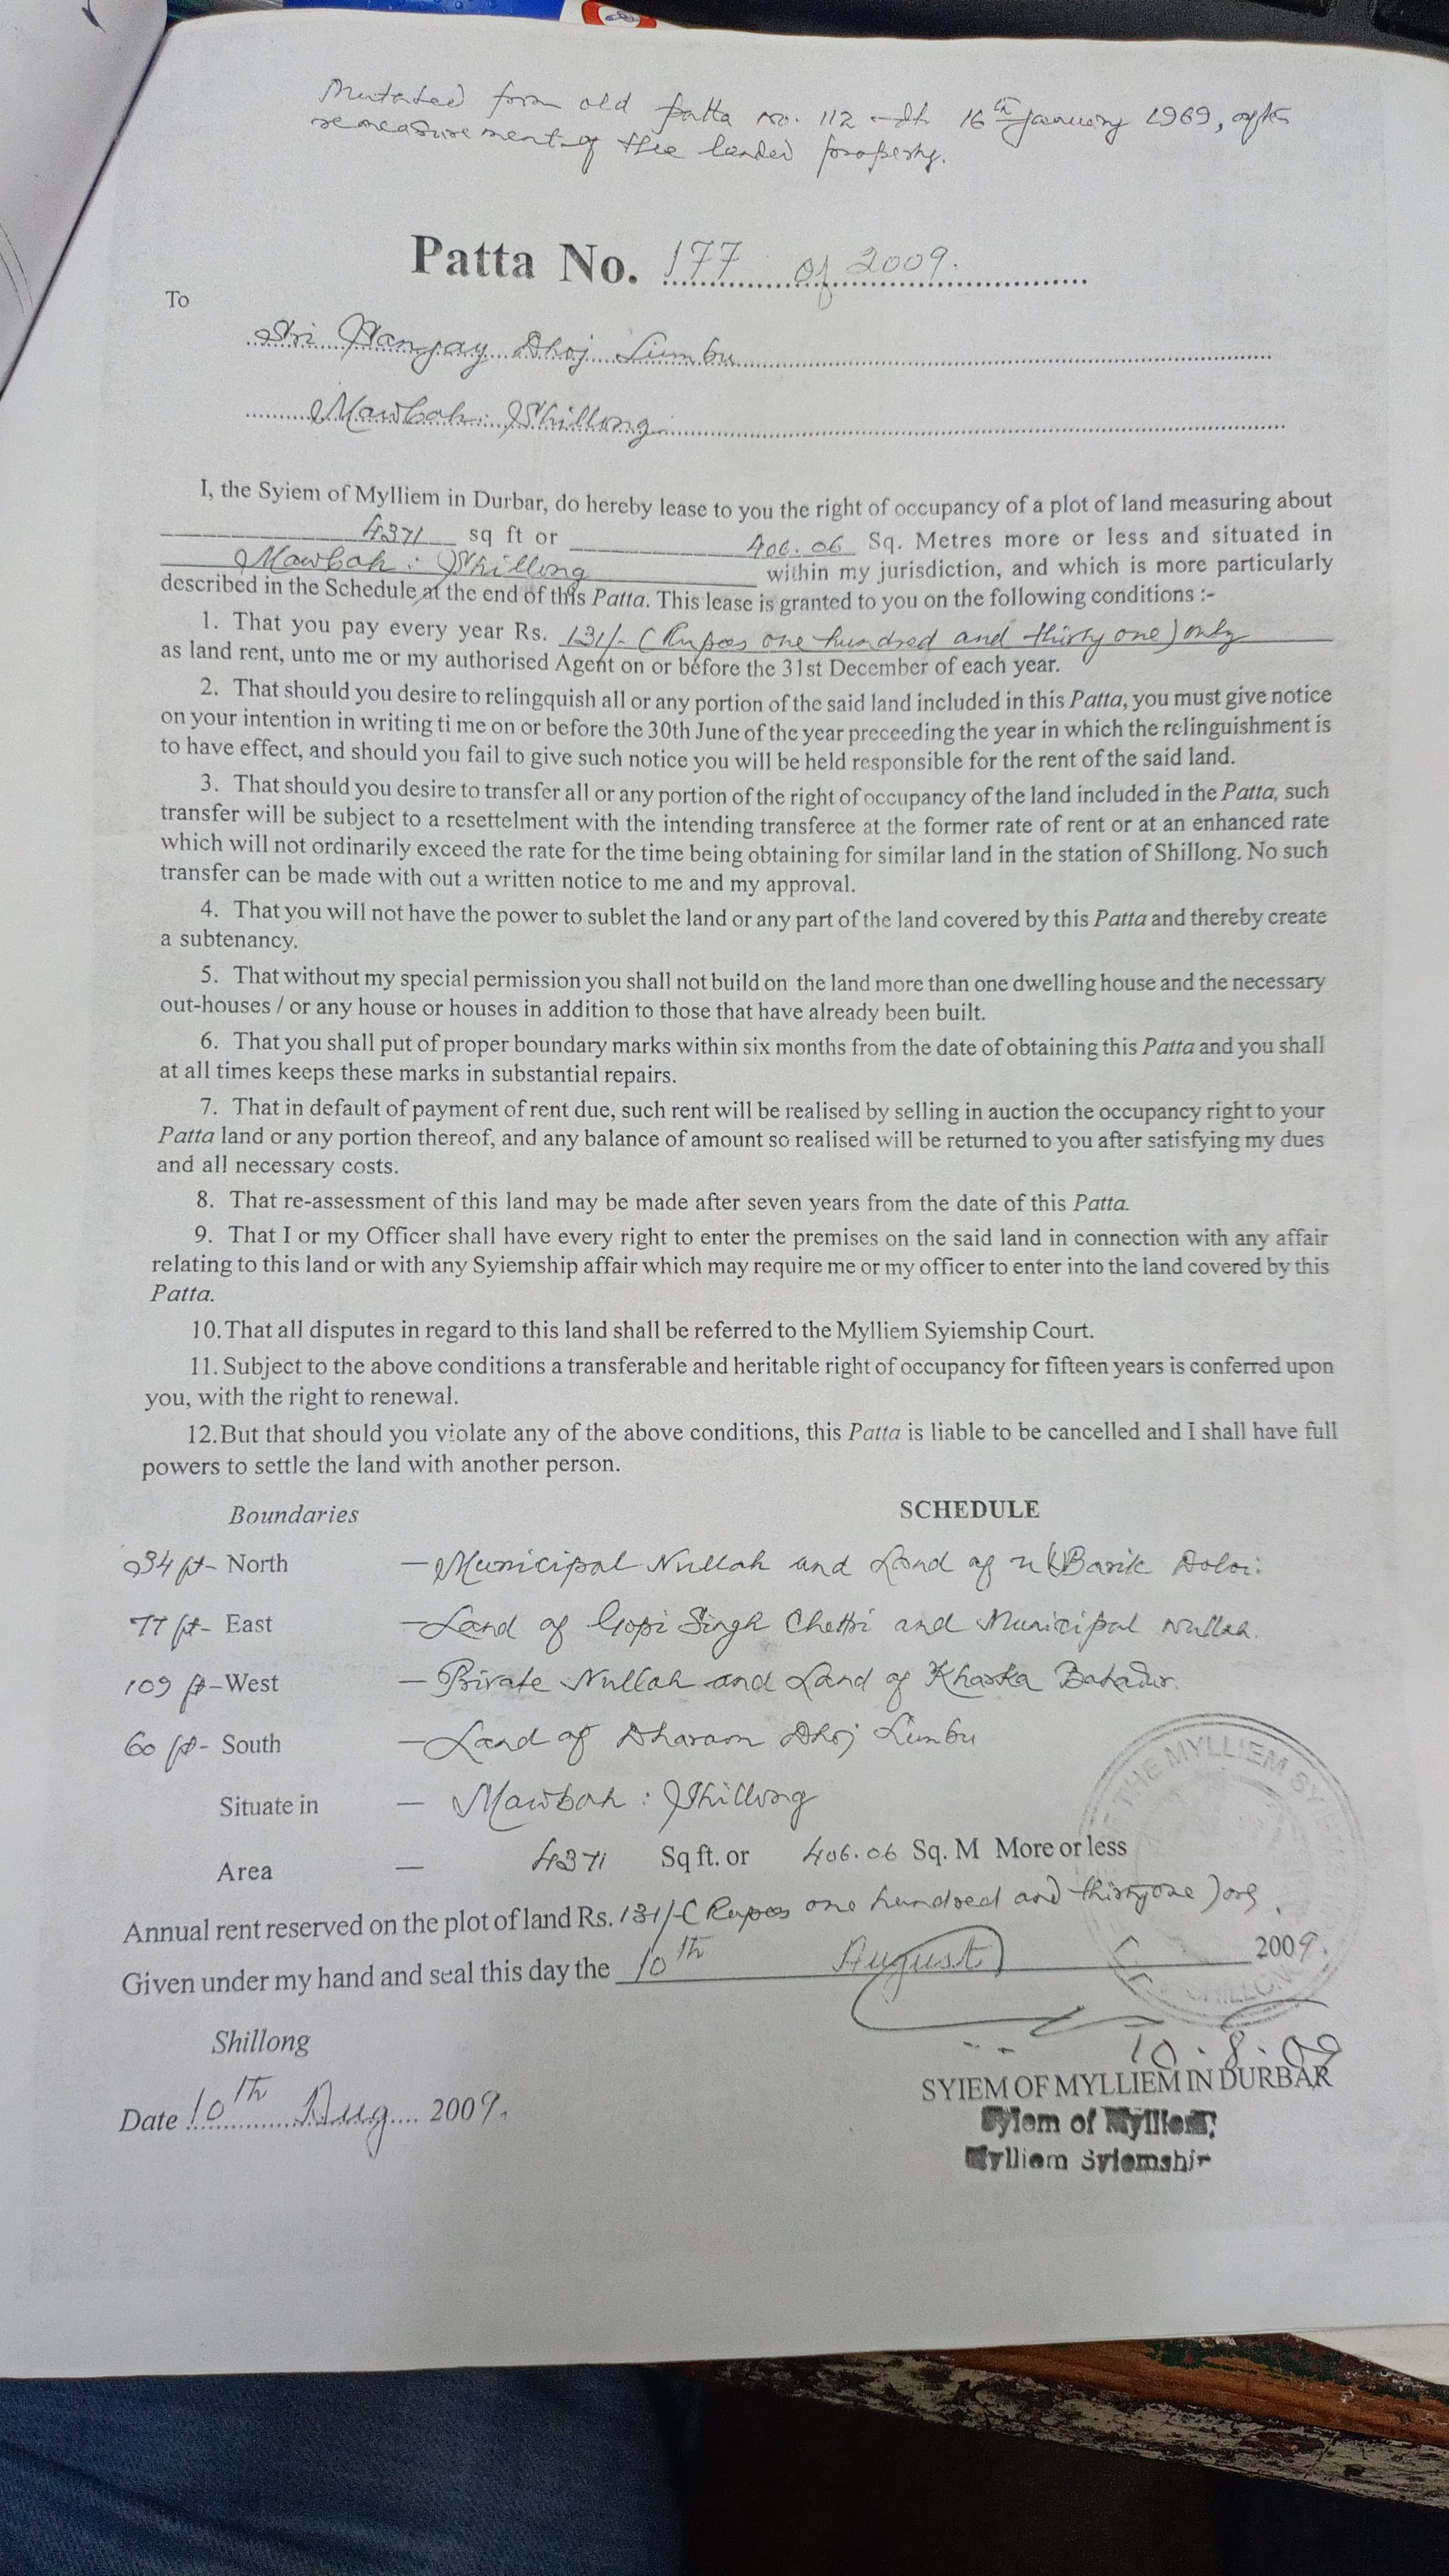 Mutated from old patta no. 112 dt. 16th January 1969, after
remeasurement of the landed property.
Patta No. 177 of 2009.
To
Sri Dhoj Limbu
Mawbah: Shillong
I, the Syiem of Mylliem in Durbar, do hereby lease to you the right of occupancy of a plot of land measuring about
4371 sq ft or 406.06 Sq. Metres more or less and situated in
Mawbah: Shillong within my jurisdiction, and which is more particularly
described in the Schedule at the end of this Patta. This lease is granted to you on the following conditions :-
1. That you pay every year Rs. 131/- (Rupees one hundred and thirty one) only
as land rent, unto me or my authorised Agent on or before the 31st December of each year.
2. That should you desire to relingquish all or any portion of the said land included in this Patta, you must give notice
on your intention in writing ti me on or before the 30th June of the year preceeding the year in which the relinguishment is
to have effect, and should you fail to give such notice you will be held responsible for the rent of the said land.
3. That should you desire to transfer all or any portion of the right of occupancy of the land included in the Patta, such
transfer will be subject to a resettelment with the intending transferee at the former rate of rent or at an enhanced rate
which will not ordinarily exceed the rate for the time being obtaining for similar land in the station of Shillong. No such
transfer can be made with out a written notice to me and my approval.
4. That you will not have the power to sublet the land or any part of the land covered by this Patta and thereby create
a subtenancy.
5. That without my special permission you shall not build on the land more than one dwelling house and the necessary
out-houses / or any house or houses in addition to those that have already been built.
6. That you shall put of proper boundary marks within six months from the date of obtaining this Patta and you shall
at all times keeps these marks in substantial repairs.
7. That in default of payment of rent due, such rent will be realised by selling in auction the occupancy right to your
Patta land or any portion thereof, and any balance of amount so realised will be returned to you after satisfying my dues
and all necessary costs.
8. That re-assessment of this land may be made after seven years from the date of this Patta.
9. That I or my Officer shall have every right to enter the premises on the said land in connection with any affair
relating to this land or with any Syiemship affair which may require me or my officer to enter into the land covered by this
Patta.
10. That all disputes in regard to this land shall be referred to the Mylliem Syiemship Court.
11. Subject to the above conditions a transferable and heritable right of occupancy for fifteen years is conferred upon
you, with the right to renewal.
12. But that should you violate any of the above conditions, this Patta is liable to be cancelled and I shall have full
powers to settle the land with another person.
Boundaries SCHEDULE
34 ft- North — Municipal Nullah and Land of Barik
77 ft- East — Land of Gopi Singh Chettri and Municipal Nullah.
109 ft- West — Private Nullah and Land of Kharka Bahadur.
60 ft- South — Land of Dharam Dhoj Limbu
Situate in — Mawbah: Shillong
Area — 4371 Sq ft. or 406.06 Sq. M More or less
Annual rent reserved on the plot of land Rs. 131/- (Rupees one hundred and thirtyone) only.
Given under my hand and seal this day the 10th August 2009.
THE MYLLIEM
SHILLONG
Shillong
10.8.09
SYIEM OF MYLLIEM IN DURBAR
Date 10th Aug 2009.
Syiem of Mylliem,
Mylliem Syiemship